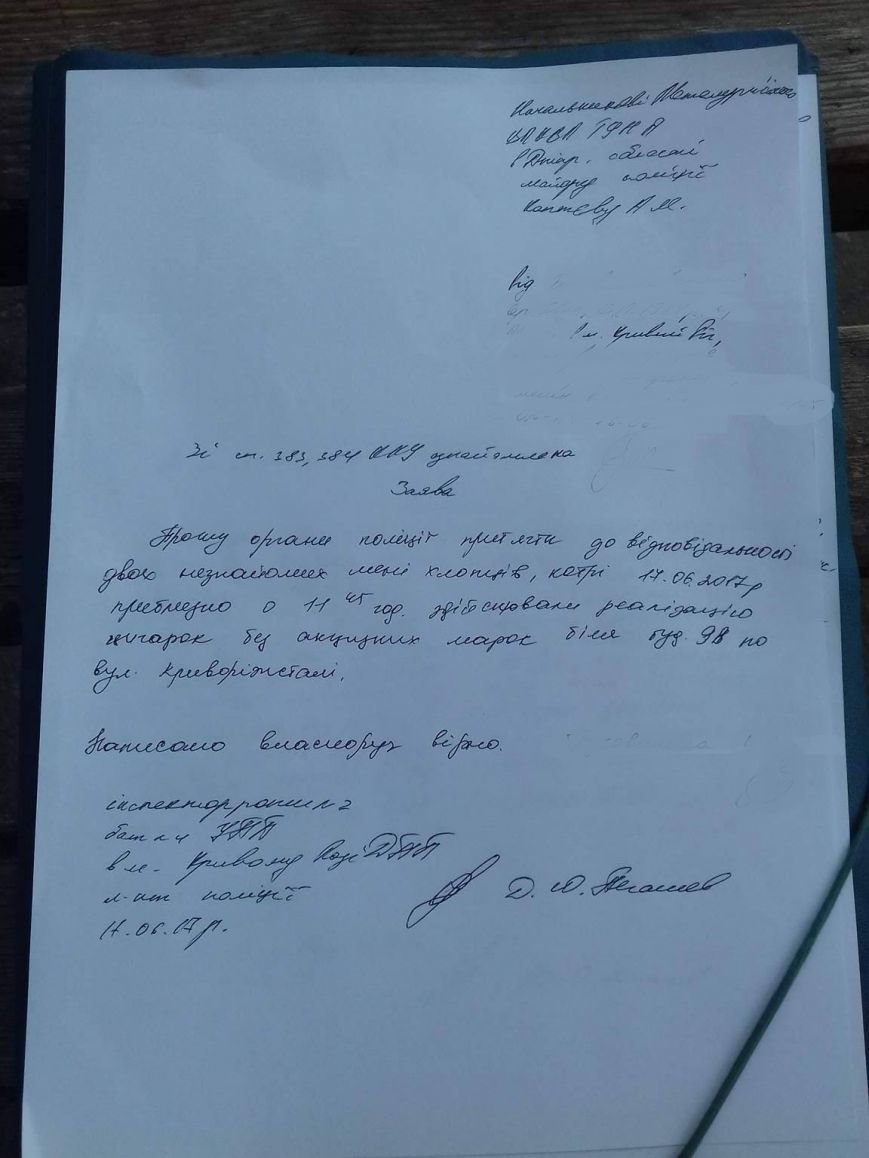 Начальникові Металургійного
ВП КВП ГУНП
в Дніпр. області
майору поліції
Коптєву А.М.
Від
м. Кривий Ріг,
Зі ст. 383, 384 ККУ ознайомлена
Заява
Прошу органи поліції притягти до відповідальності
двох незнайомих мені хлопців, котрі 17.06.2017р
приблизно о 11 45 год. здійснювали реалізацію
цигарок без акцизних марок біля буд. 9В по
вул. Криворіжсталі.
Написано власноруч вірно.
інспектор роти №2
бат №4 УПП
в м. Кривому Розі ДПП
л-нт поліції
17.06.17р.
Д. Ю.